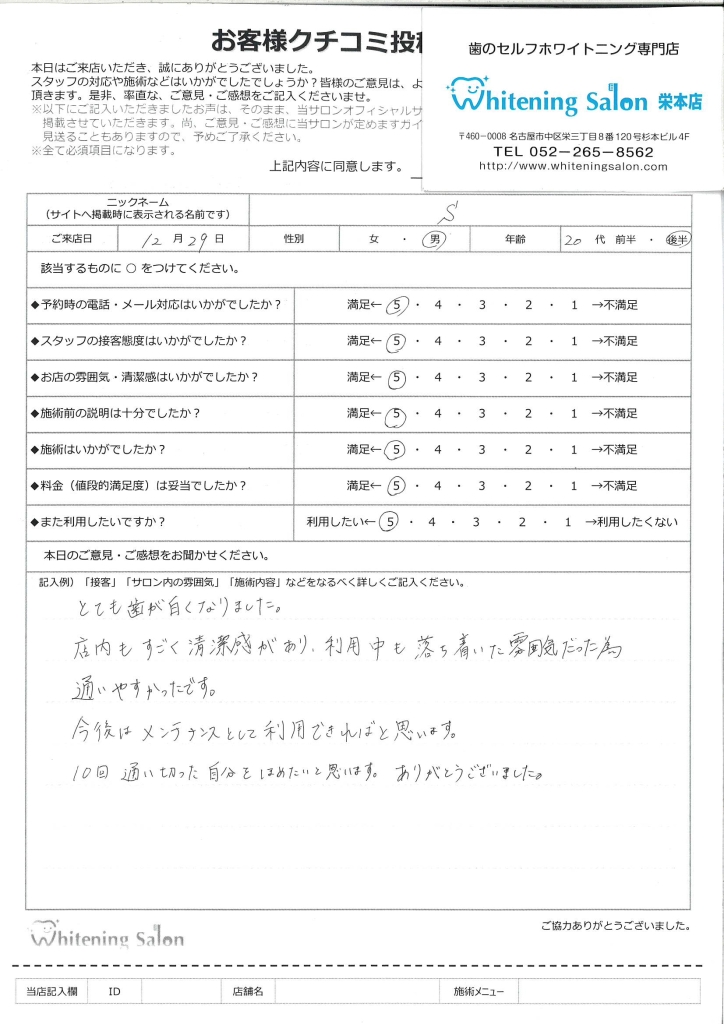 お客様クチコミ投稿
本日はご来店いただき、誠にありがとうございました。
スタッフの対応や施術などはいかがでしたでしょうか？皆様のご意見は、よ
頂きます。是非、率直な、ご意見・ご感想をご記入くださいませ。
※以下にご記入いただきましたお声は、そのまま、当サロンオフィシャルサ
掲載させていただきます。尚、ご意見・ご感想に当サロンが定めますガイ
見送ることもありますので、予めご了承ください。
※全て必須項目になります。
上記内容に同意します。
歯のセルフホワイトニング専門店
Whitening Salon 栄本店
〒460-0008 名古屋市中区栄三丁目8番120号杉本ビル4F
TEL 052-265-8562
http://www.whiteningsalon.com
ニックネーム
（サイトへ掲載時に表示される名前です）
S
ご来店日 12 月 29 日 性別 女 ・ 男 年齢 20 代 前半 ・ 後半
該当するものに ○ をつけてください。
◆予約時の電話・メール対応はいかがでしたか？ 満足← 5 ・ 4 ・ 3 ・ 2 ・ 1 →不満足
◆スタッフの接客態度はいかがでしたか？ 満足← 5 ・ 4 ・ 3 ・ 2 ・ 1 →不満足
◆お店の雰囲気・清潔感はいかがでしたか？ 満足← 5 ・ 4 ・ 3 ・ 2 ・ 1 →不満足
◆施術前の説明は十分でしたか？ 満足← 5 ・ 4 ・ 3 ・ 2 ・ 1 →不満足
◆施術はいかがでしたか？ 満足← 5 ・ 4 ・ 3 ・ 2 ・ 1 →不満足
◆料金（値段的満足度）は妥当でしたか？ 満足← 5 ・ 4 ・ 3 ・ 2 ・ 1 →不満足
◆また利用したいですか？ 利用したい← 5 ・ 4 ・ 3 ・ 2 ・ 1 →利用したくない
本日のご意見・ご感想をお聞かせください。
記入例）「接客」「サロン内の雰囲気」「施術内容」などをなるべく詳しくご記入ください。
とても歯が白くなりました。
店内もすごく清潔感があり、利用中も落ち着いた雰囲気だった為
通いやすかったです。
今後はメンテナンスとして利用できればと思います。
10回通い切った自分をほめたいと思います。ありがとうございました。
ご協力ありがとうございました。
Whitening Salon
当店記入欄 ID 店舗名 施術メニュー